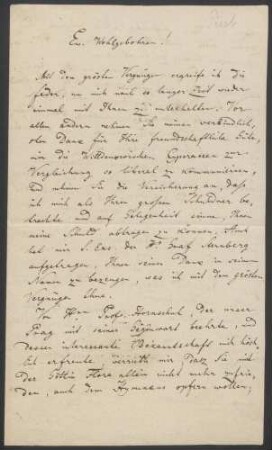 Ew. Wohlgebohren!
Mit dem grösten Vergnügen ergreife ich die
Feder, um mich nach so langer Zeit wieder
einmal mit Ihnen zu unterhalten. Vor
allen andern nehmen Sie meinen verbindlich-
sten Dank für Ihre freundschaftliche Güte,
mir die Exemplare zur
Vergleichung so liberal zu kommuniciren,
und nehmen Sie die Versicherung an, daß
ich mich als Ihren großen Schuldner be-
trachte und auf Gelegenheit sinne, Ihnen
meine Schuld abtragen zu können. Auch
hat mir S. Exc. der H. Graf Sternberg
aufgetragen, Ihnen seinen Dank in seinem
Namen zu bezeugen, was ich mit dem grösten
Vergnügen thue.
Von Prof. Hornschuch, der unser
Prag mit seiner Gegenwart beehrte, und
dessen interessante Bekanntschaft mich höch-
lich erfreute daß Sie mit
der Göttin Flora allein nicht mehr zufrie-
den, auch dem Hymenaeus opfern wollen,